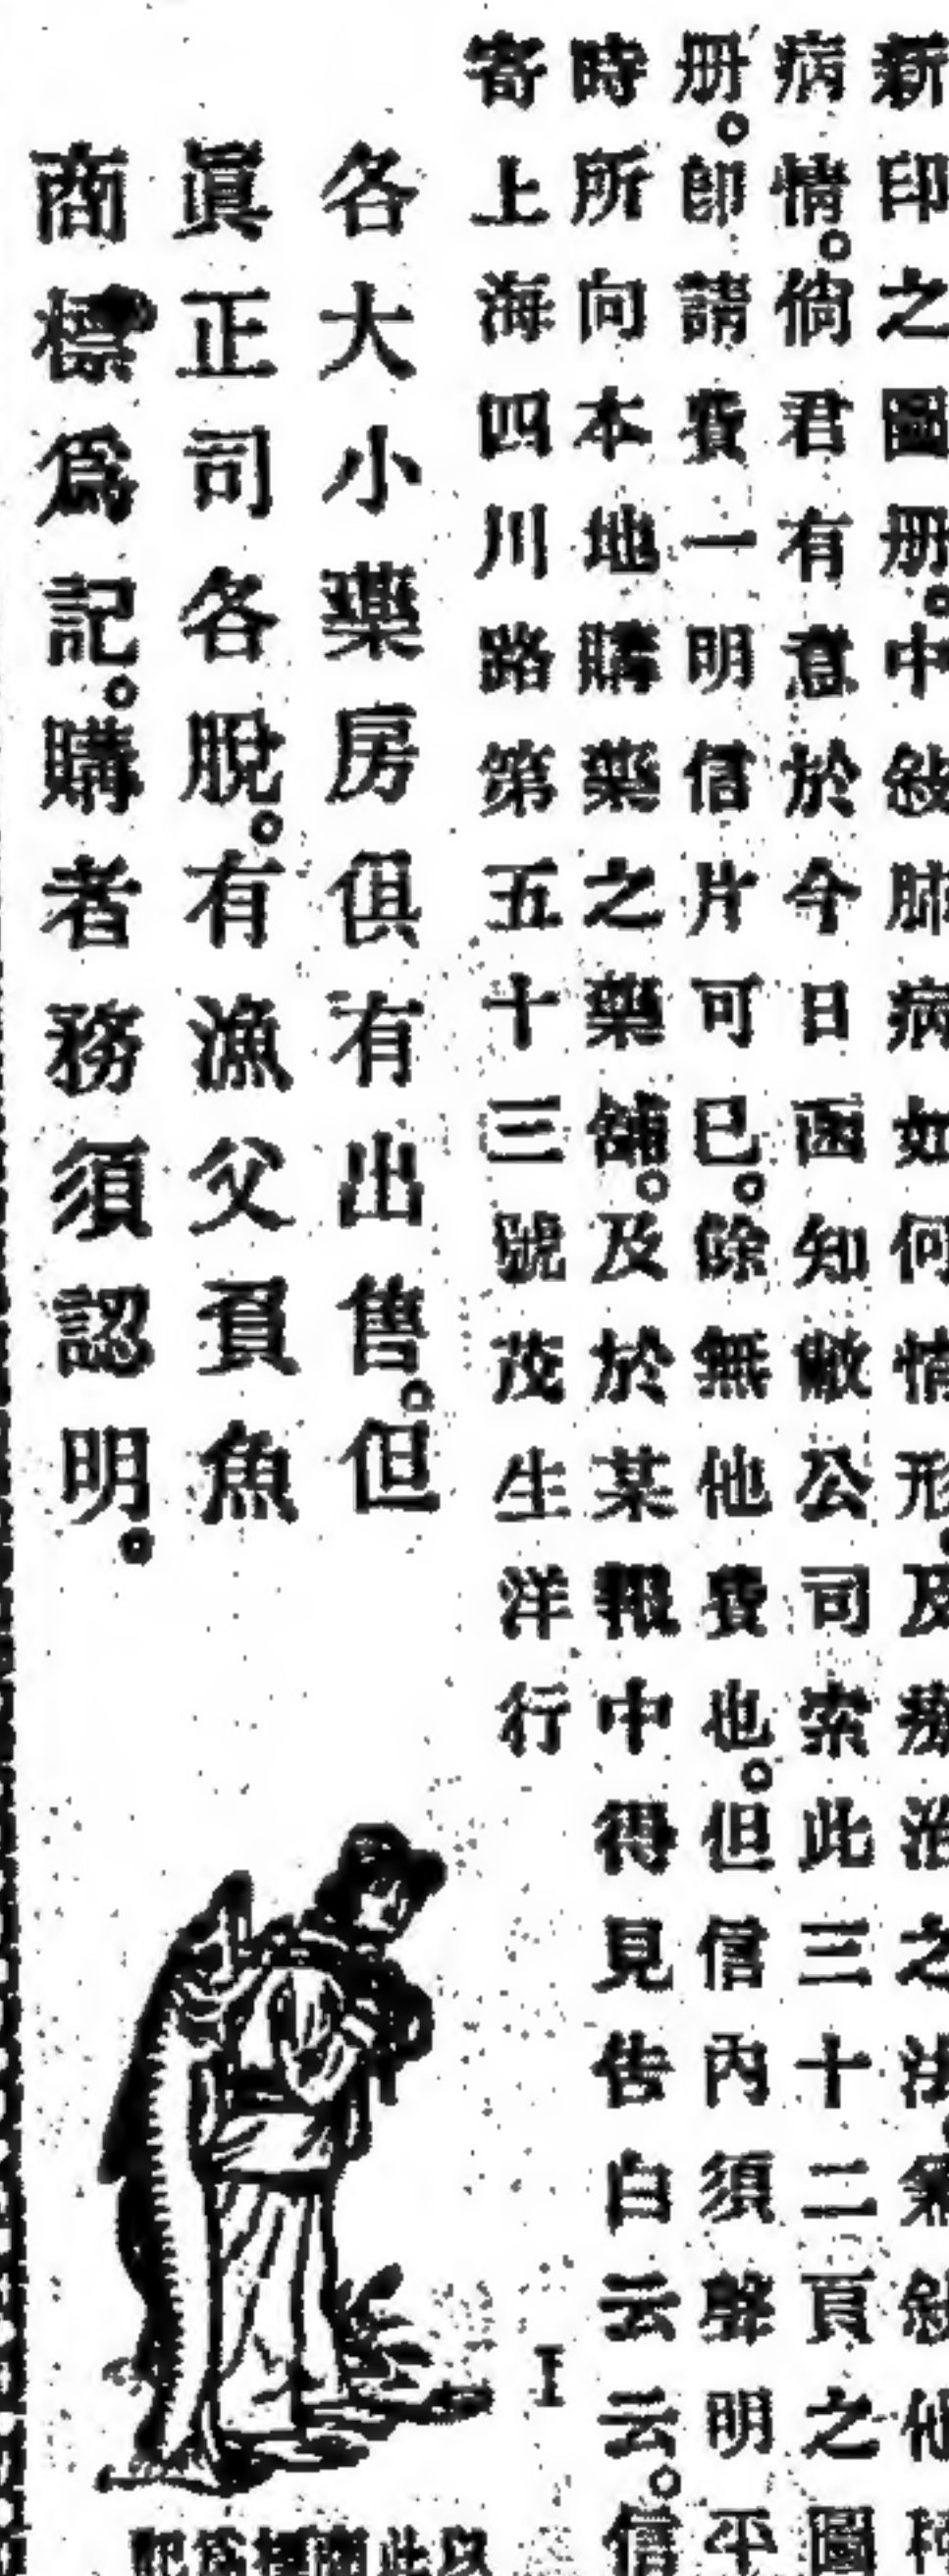 新印之圖册。中敍肺病如何情形。及療治之法。兼敍他種
病情。倘君有意於今日函知敝公司索此三十二頁之圖
册。卽請費一明信片可已。餘無他費也。但信內須聲明平
時所向本地購藥之藥舖。及於某報中得見告白云云。信
寄上海四川路第五十三號茂生洋行
各大小藥房俱有出售。但
眞正司各脫。有漁父負魚
商標爲記。購者務須認明。
I
以此商標爲記